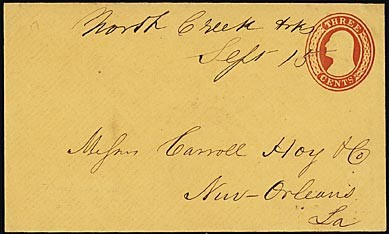 North Creek Ark
Sept 15
THREE
CENTS
Messrs Carroll Hoy & Co
New-Orleans
La